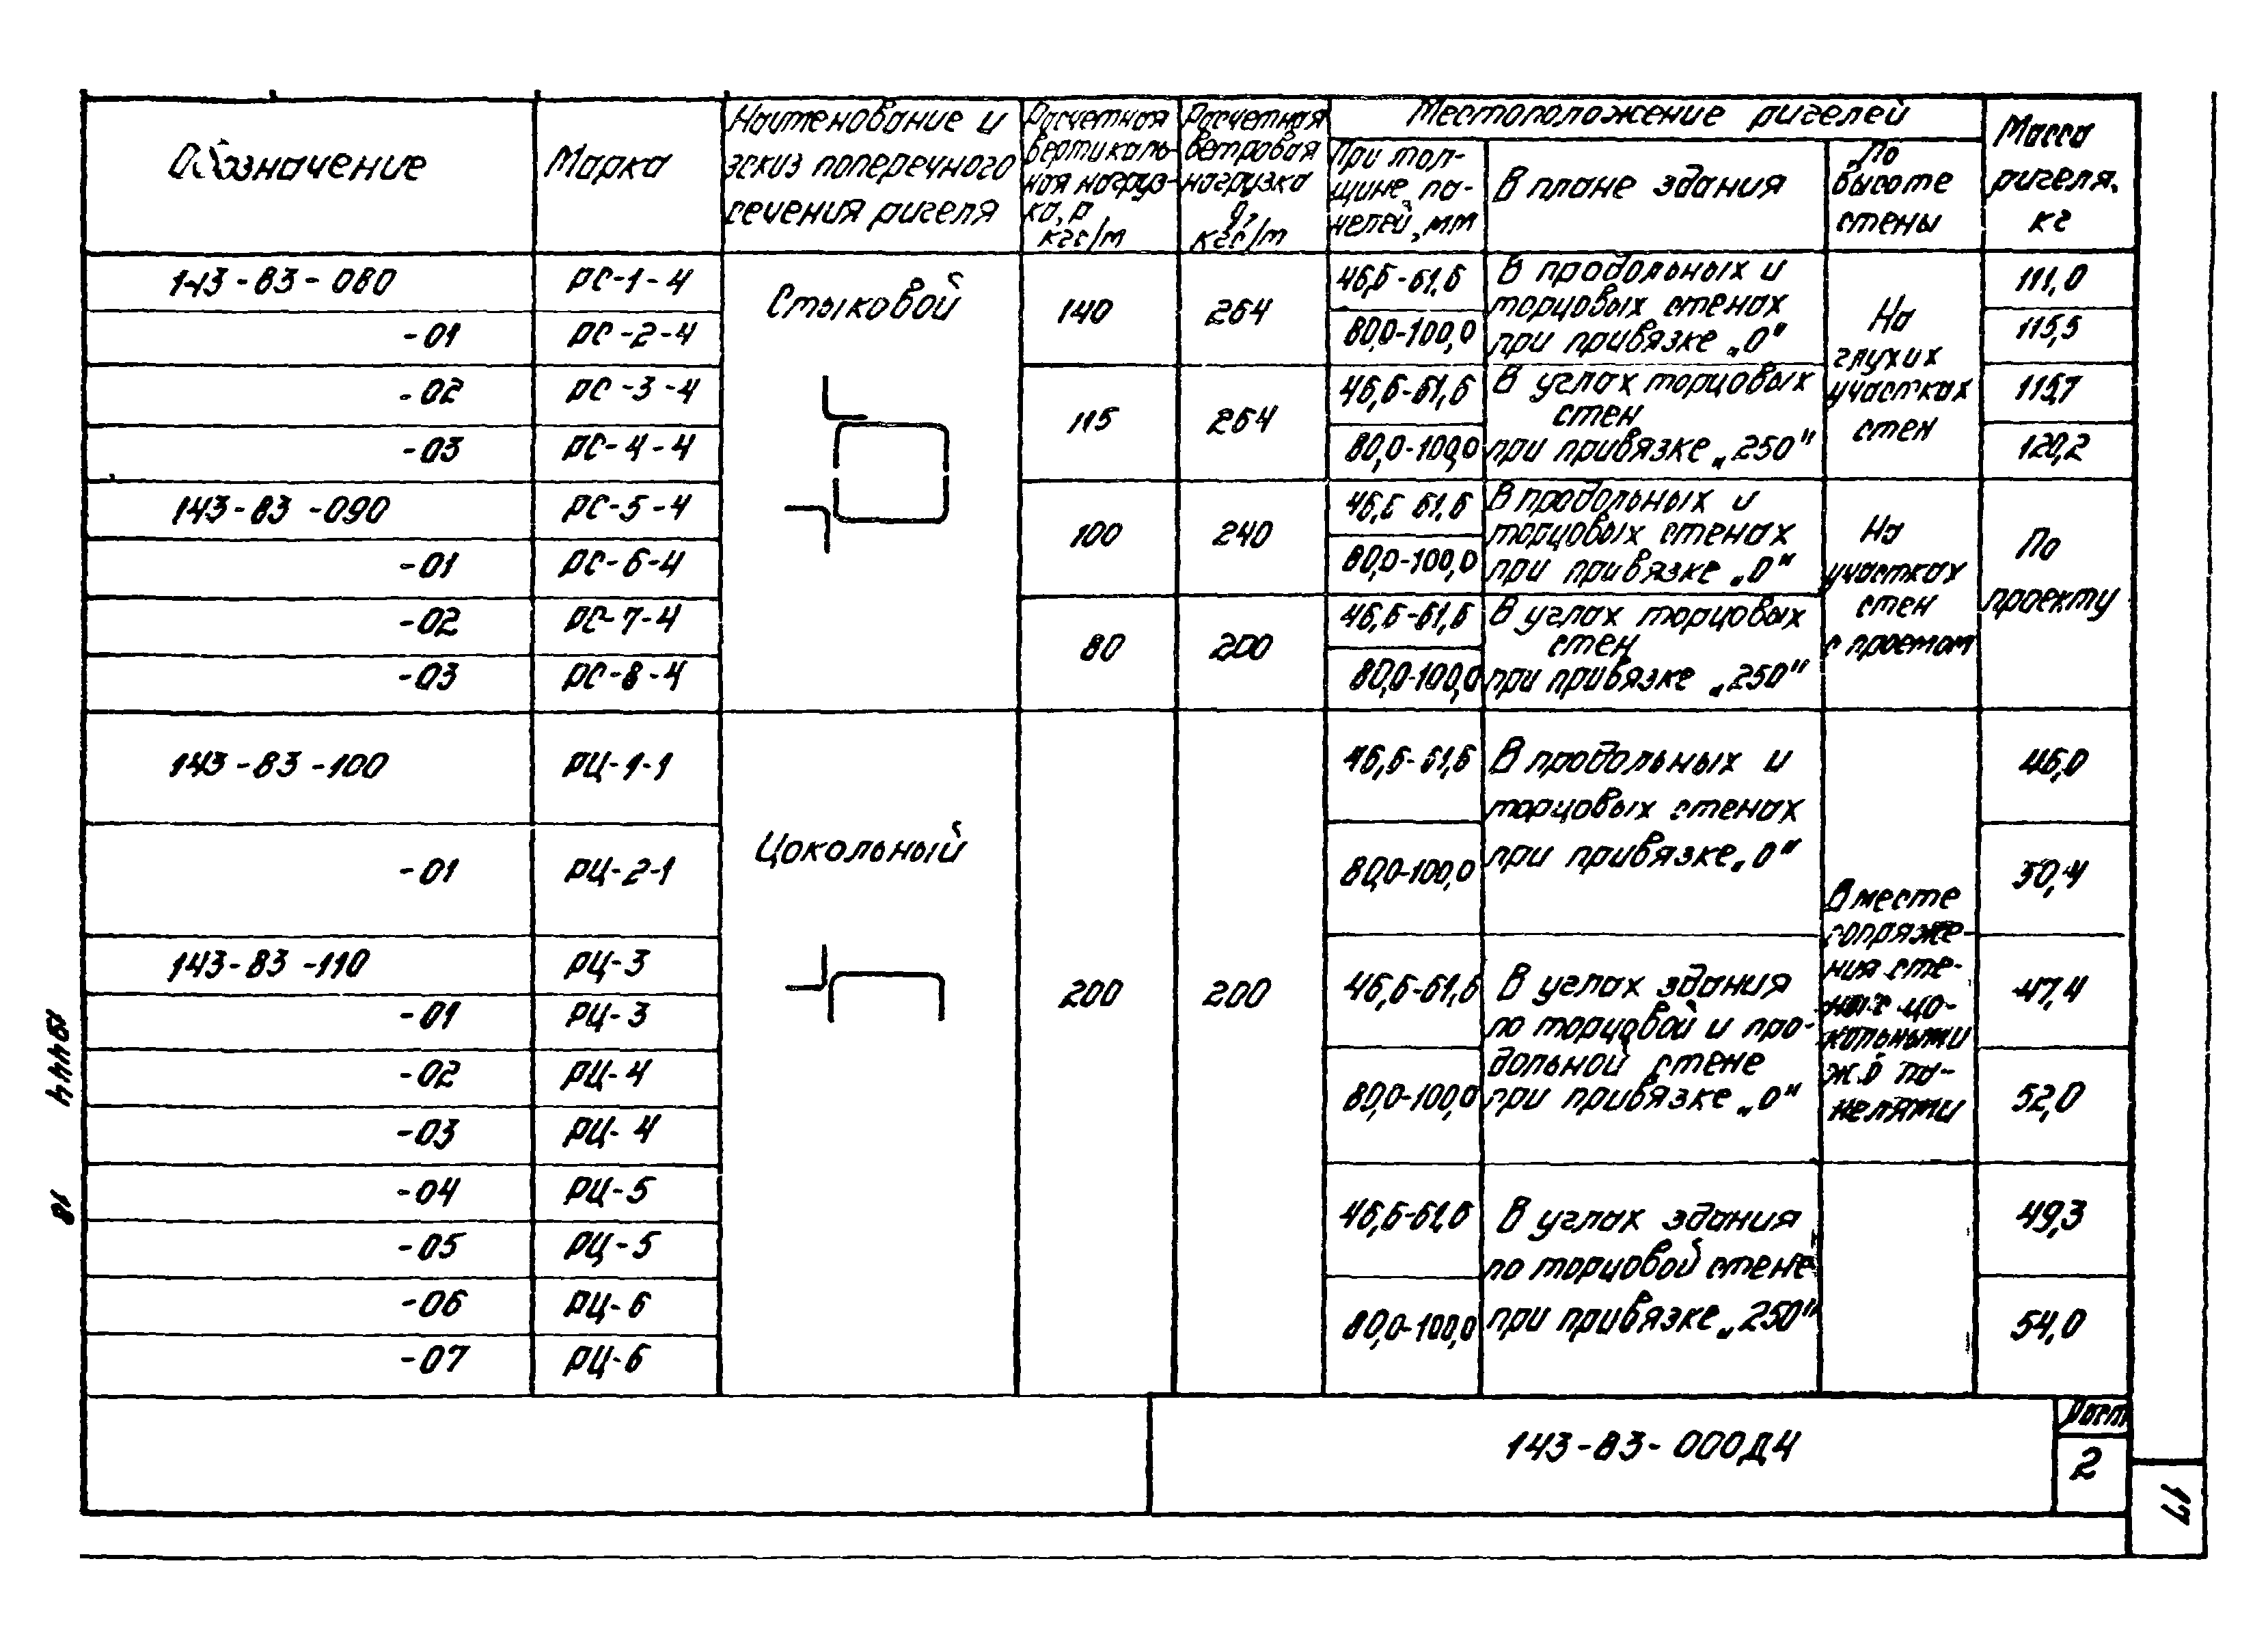 Обозначение
Марка
Наименование и
эскиз поперечного
сечения ригеля
Расчетная
вертикаль-
ная нагруз-
ка, р
кгс/м
Расчетная
ветровая
нагрузка
q,
кгс/м
Местоположение ригелей
При тол-
щине па-
нелей, мм
В плане здания
По
высоте
стены
Масса
ригеля,
кг
143-83-080 РС-1-4
-01 РС-2-4
-02 РС-3-4
-03 РС-4-4
143-83-090 РС-5-4
-01 РС-6-4
-02 РС-7-4
-03 РС-8-4
Стыковой
140 264
115 264
100 240
80 200
46,6-61,6
80,0-100,0
46,6-61,6
80,0-100,0
61,6
80,0-100,0
46,6-61,6
80,0-100,0
В продольных и
торцовых стенах
при привязке „0"
В углах торцовых
стен
при привязке „250"
В продольных и
торцовых стенах
при привязке „0"
В углах торцовых
стен
при привязке „250"
На
глухих
участках
стен
На
участках
стен
с проемом
111,0
115,5
115,7
120,2
По
проекту
143-83-100 РЦ-1-1
-01 РЦ-2-1
143-83-110 РЦ-3
-01 РЦ-3
-02 РЦ-4
-03 РЦ-4
-04 РЦ-5
-05 РЦ-5
-06 РЦ-6
-07 РЦ-6
Цокольный
200 200
46,6-61,6
80,0-100,0
46,6-61,6
80,0-100,0
46,6-61,6
80,0-100,0
В продольных и
торцовых стенах
при привязке „0"
В углах здания
по торцовой и про-
дольной стене
при привязке „0"
В углах здания
по торцовой стене
при привязке „250"
В месте
сопряже-
ния сте-
ны с цо-
кольными
ж.б па-
нелями
46,0
50,4
47,4
52,0
49,3
54,0
143-83-000Д4
Лист
2
17
19444
18